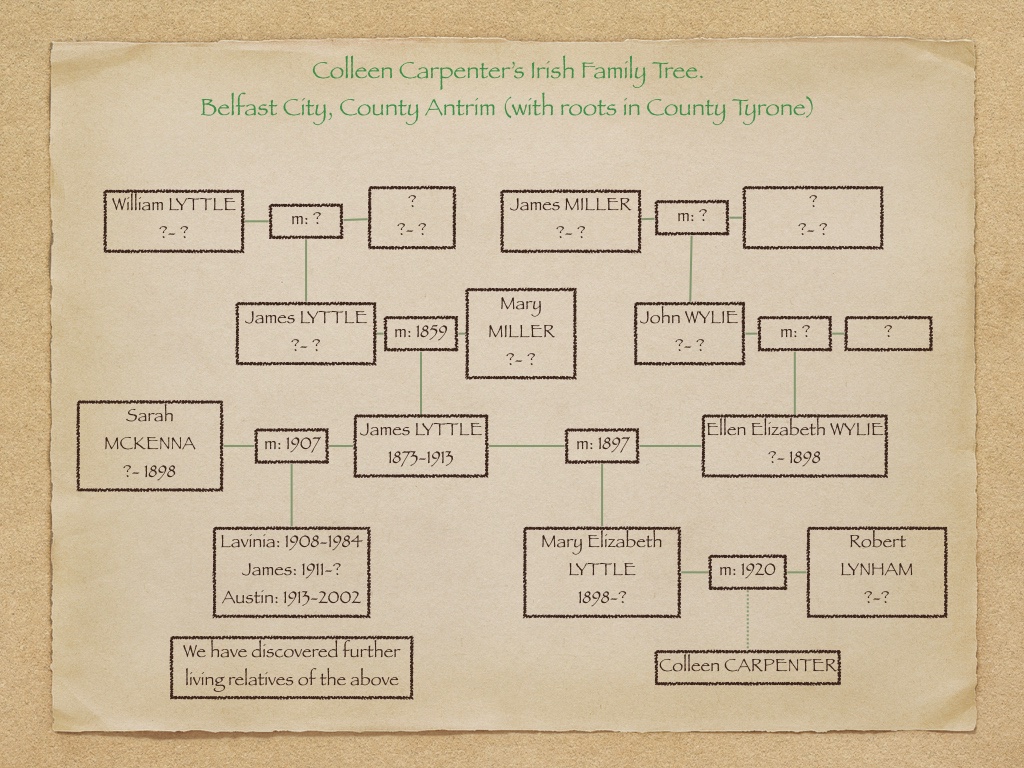 Colleen Carpenter's Irish Family Tree.
Belfast City, County Antrim (with roots in County Tyrone)
William LYTTLE
?- ?
m: ?
?
?- ?
James MILLER
?- ?
m: ?
?
?- ?
James LYTTLE
?- ?
m: 1859
Mary
MILLER
?- ?
John WYLIE
?- ?
m: ?
?
Sarah
MCKENNA
?- 1898
m: 1907
James LYTTLE
1873-1913
m: 1897
Ellen Elizabeth WYLIE
?- 1898
Lavinia: 1908-1984
James: 1911-?
Austin: 1913-2002
Mary Elizabeth
LYTTLE
1898-?
m: 1920
Robert
LYNHAM
?-?
We have discovered further
living relatives of the above
Colleen CARPENTER